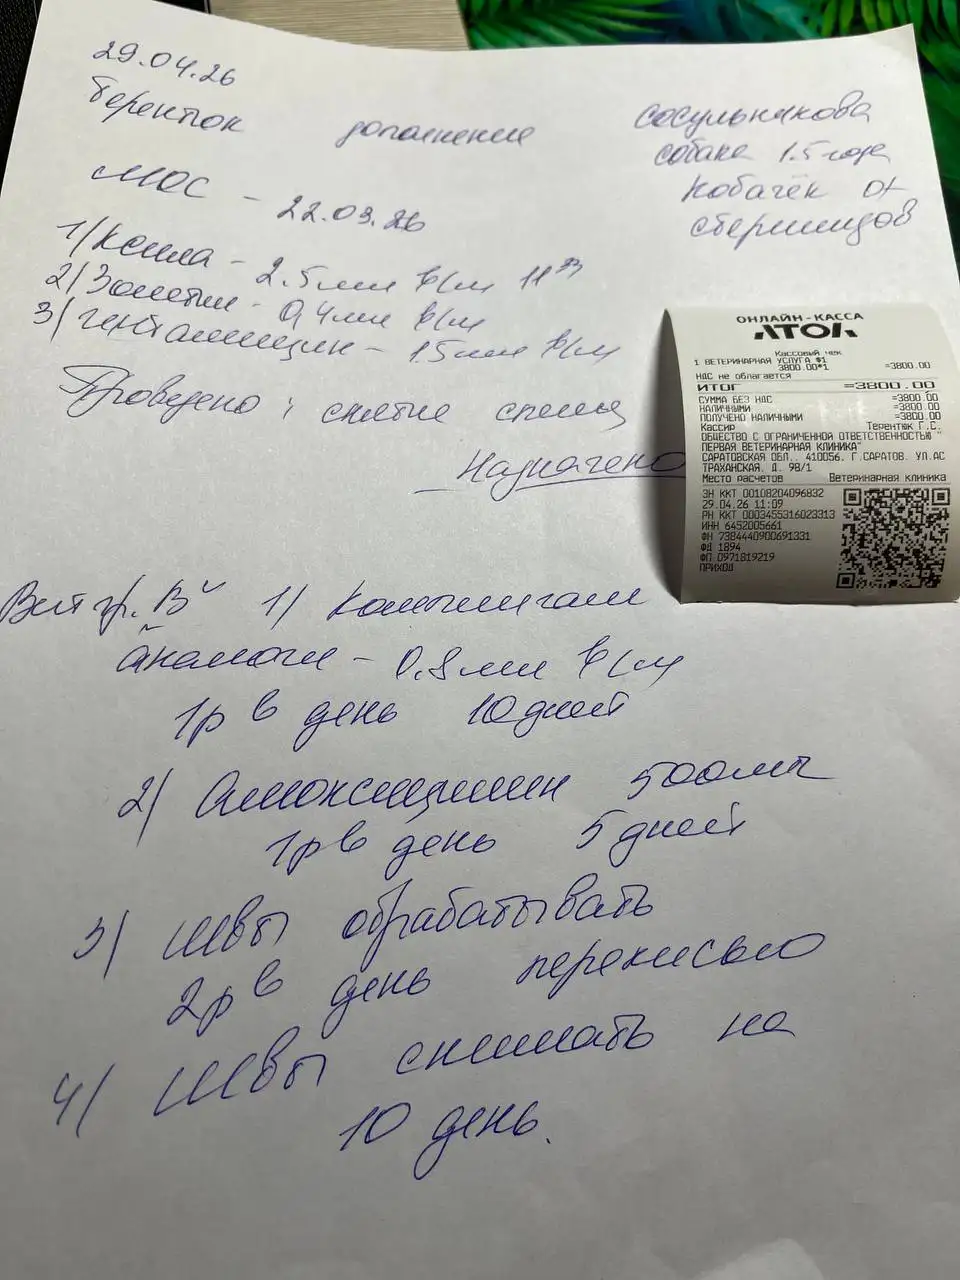 29.04.26
Терентюк дополнение Сосульникова
собака 1.5 года
Кобачёк от
МОС - 22.03.26
1) Ксила - 2.5мл в/м 11
2) Золетил - 0,4мл в/м
3) гентамицин - 15мл в/м
Проведено: снятие спицы
Назначено
Вит гр. В 1) Комплигам
аналоги - 0.8мл в/м
1р в день 10 дней
2) Амоксициллин 500мг
1р в день 5 дней
3) Швы обрабатывать
2р в день перекисью
4) Швы снимать на
10 день.
ОНЛАЙН-КАССА
АТОЛ
Кассовый чек
1 ВЕТЕРИНАРНАЯ УСЛУГА $1
3800.00*1 =3800.00
НДС не облагается
ИТОГ =3800.00
СУММА БЕЗ НДС =3800.00
НАЛИЧНЫМИ =3800.00
ПОЛУЧЕНО НАЛИЧНЫМИ =3800.00
Кассир Терентюк Г.С.
ОБЩЕСТВО С ОГРАНИЧЕННОЙ ОТВЕТСТВЕННОСТЬЮ "
ПЕРВАЯ ВЕТЕРИНАРНАЯ КЛИНИКА"
САРАТОВСКАЯ ОБЛ., 410056, Г.САРАТОВ, УЛ.АС
ТРАХАНСКАЯ, Д. 98/1
Место расчетов Ветеринарная клиника
ЗН ККТ 00108204096832
29.04.26 11:09
РН ККТ 0003455316023313
ИНН 6452005661
ФН 7384440900691331
ФД 1894
ФП 0971819219
ПРИХОД